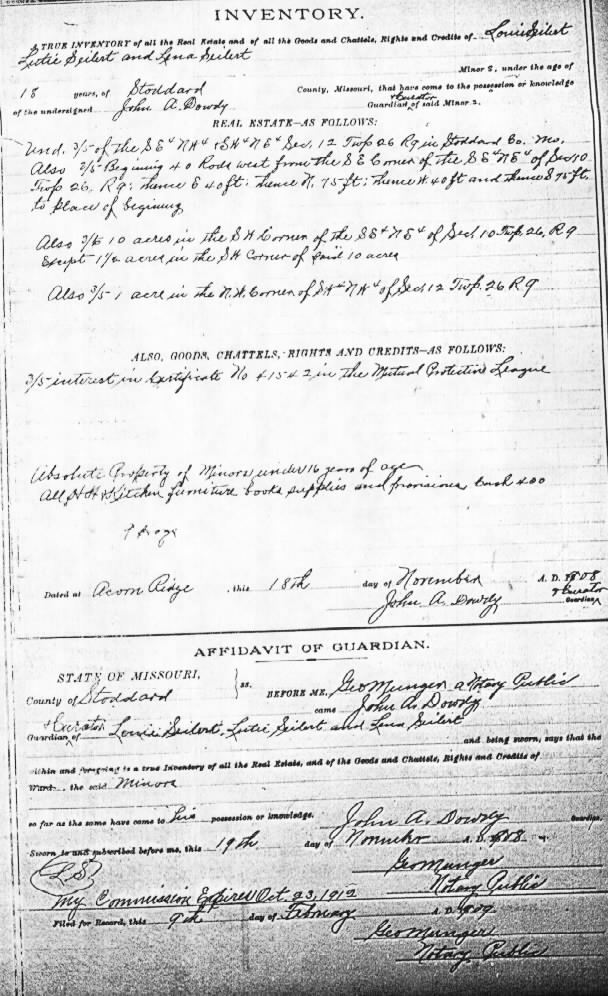 INVENTORY.
A TRUE INVENTORY of all the Real Estate and of all the Goods and Chattels, Rights and Credits of Louis Seilert
Lutie Seilert and Lena Seilert
Minor s, under the age of
18 years, of Stoddard County, Missouri, that have come to the possession or knowledge
of the undersigned John A. Dowdy Guardian & Curator of said Minor s.
REAL ESTATE—AS FOLLOWS:
Und. 3/5 of the SE 4 NW 4 & SW 4 NE 4 Sec. 12 Twp 26 R9 in Stoddard Co. Mo.
Also 3/5 Beginning 40 Rods west from the SE Corner of the SE 4 NE 4 of Sec 10
Twp 26, R9; thence E 40 ft; thence N. 75 ft; thence W 40 ft and thence S 75 ft.
to place of begining
Also 3/5 10 acres in the SW Corner of the SE 4 NE 4 of Sec 10 Twp. 26, R9
Except 1½ acres in the SW Corner of said 10 acres
Also 3/5 1 acre in the N.W. Corner of SW 4 NW 4 of Sec. 12 Twp. 26 R9
ALSO, GOODS, CHATTELS, RIGHTS AND CREDITS—AS FOLLOWS:
3/5 interest in Certificate No 41542 in the Mutual Protective League
Absolute Property of Minors under 16 years of age
All H H & Kitchen furniture books supplies and provisions cash 400
Dated at Acorn Ridge, this 18th day of November A. D. 1808
John A. Dowdy & Curator Guardian
AFFIDAVIT OF GUARDIAN.
STATE OF MISSOURI,
County of Stoddard } ss. BEFORE ME, Geo Munger a Notary Public
came John A. Dowdy
Guardian & Curator of Louis Seilert, Lutie Seilert and Lena Seilert
and being sworn, says that the
within and foregoing is a true Inventory of all the Real Estate, and of the Goods and Chattels, Rights and Credits of
Ward the said Minors
so far as the same have come to his possession or knowledge. John A. Dowdy Guardian.
Sworn to and subscribed before me, this 19th day of A. D. 1808
(L.S.) Geo Munger
My Commission Expires Oct. 23, 1912 Notary Public
Filed for Record, this 9th day of February A. D. 1809
Geo Munger
Notary Public